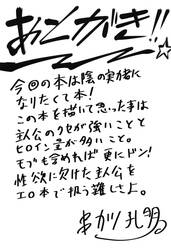 あとがき!!☆
今回の本は陰の実力者に
なりたくて本!
この本を描いて思った事は
主人公のクセが強いことと
ヒロイン達が多いこと。
モブも含めれば更にドン!
性欲に欠けた主人公を
エロ本で扱う難しさよ。
串カツ孔多